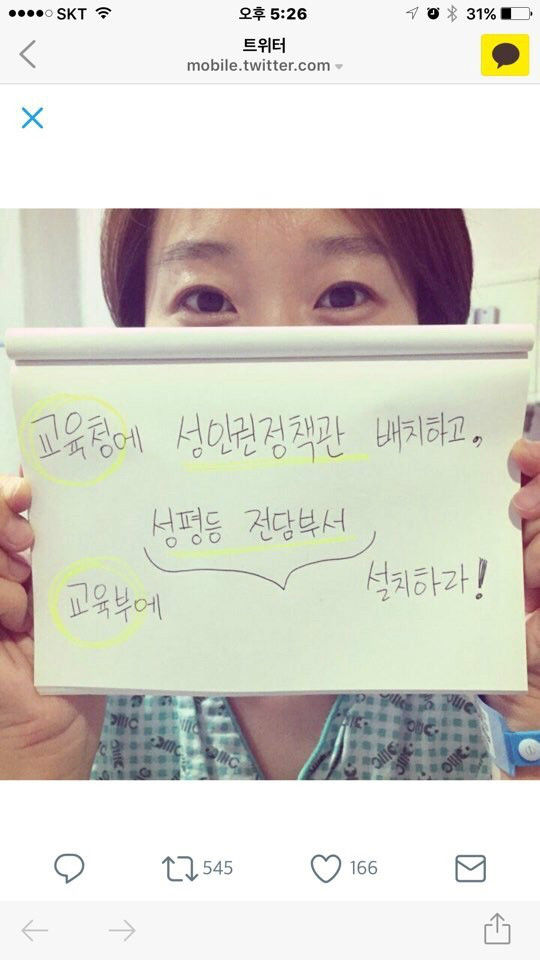 SKT 오후 5:26 31%
트위터
mobile.twitter.com
교육청에 성인권정책관 배치하고,
성평등 전담부서
교육부에 설치하라!
545 166